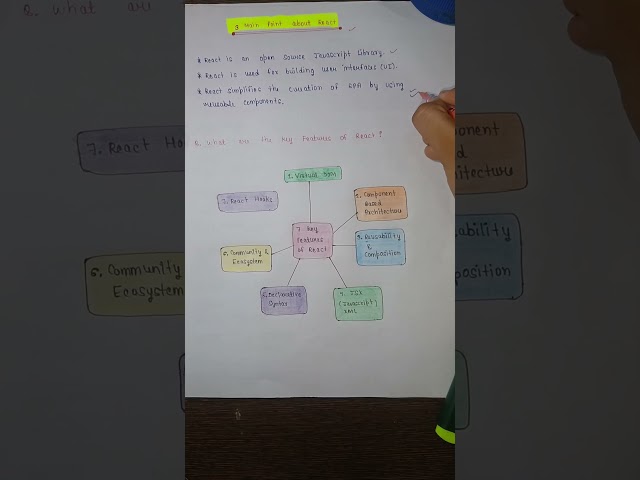 3 main Point about React
* React is an open source Javascript Library.
* React is used for building user interfaces (UI).
* React simplifies the creation of SPA by using
reusable components.
Q. What are the key Features of React?
1. Virtual DOM
7. React Hooks
2. Component
Based
Architecture
7 Key
Features
of React
3. Reusability
&
Composition
6. Community &
Ecosystem
5. Declarative
Syntax
4. JSX
(Javascript)
XML
Q. what are
7. React Hook
6. Community
Ecosystem
ponent
ed
itecture
sability
position